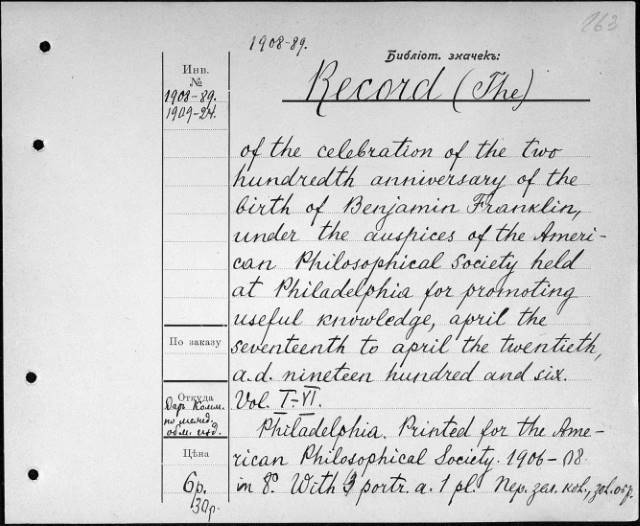 263
1908-89.
Библіот. значекъ:
Инв.
№
1908-89.
1909-24.
Record (The)
of the celebration of the two
hundredth anniversary of the
birth of Benjamin Franklin,
under the auspices of the Ameri-
can Philosophical Society held
at Philadelphia for promoting
useful knowledge, april the
По заказу
seventeenth to april the twentieth,
a.d. nineteen hundred and six.
Откуда
Дар Комм.
по межд.
обм. изд.
Vol. I-VI.
Philadelphia. Printed for the Ame-
Цѣна
rican Philosophical Society. 1906-08
6р.
30р.
in 8º. With 3 portr. a. 1 pl. Пер. зел. кол., зол. обр.